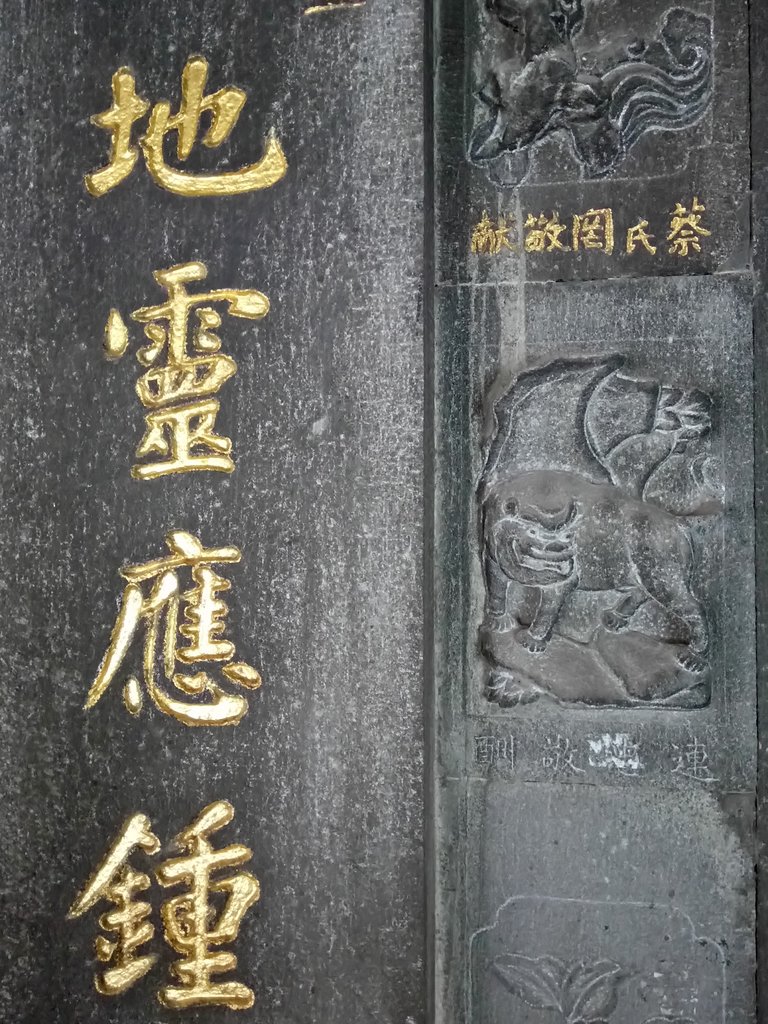 地靈應鍾
蔡氏罔敬献
連敬酬